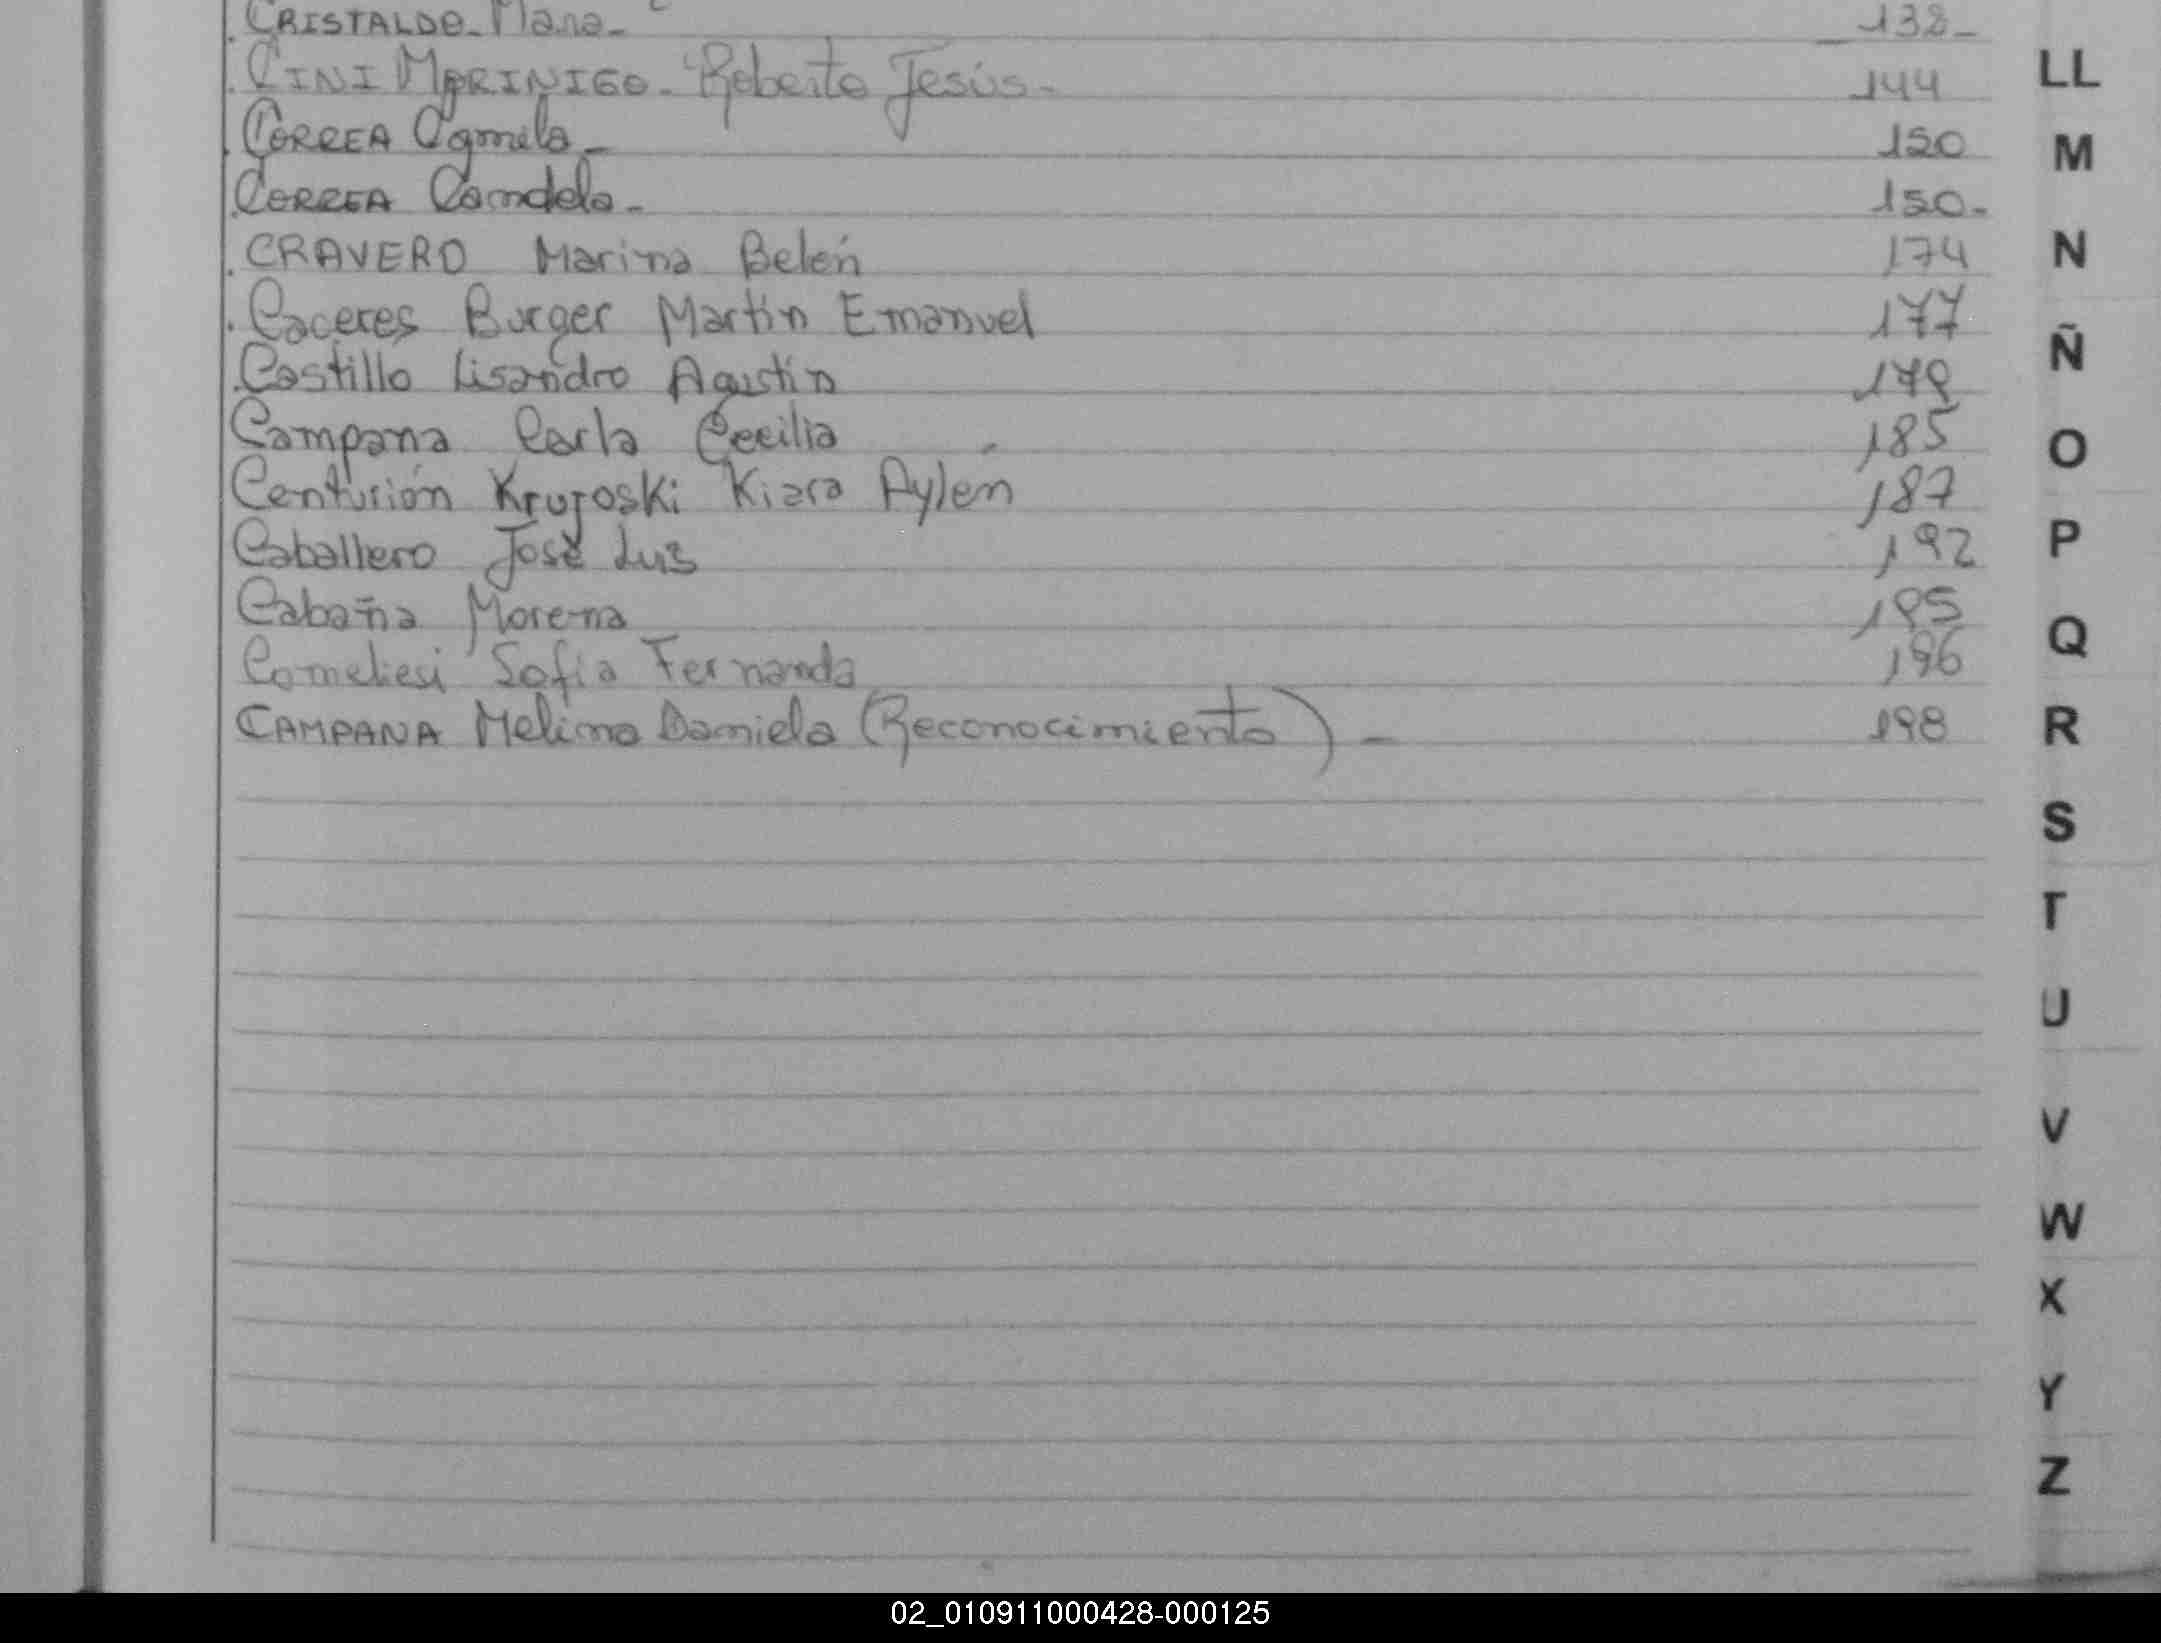 CRISTALDO - Mara - 138 -
CINI MORINIGO - Roberto Jesús - 144
CORREA Camila - 150
CORREA Candela - 150 -
CRAVERO Marina Belén 174
Caceres Burger Martín Emanuel 177
Castillo Lisandro Agustín 179
Campana Carla Cecilia 185
Centurión Krujoski Kiara Aylén 187
Caballero José Luis 192
Cabaña Morena 195
Sofía Fernanda 196
CAMPANA Melina Daniela (Reconocimiento) - 198
LL
M
N
Ñ
O
P
Q
R
S
T
U
V
W
X
Y
Z
02_010911000428-000125